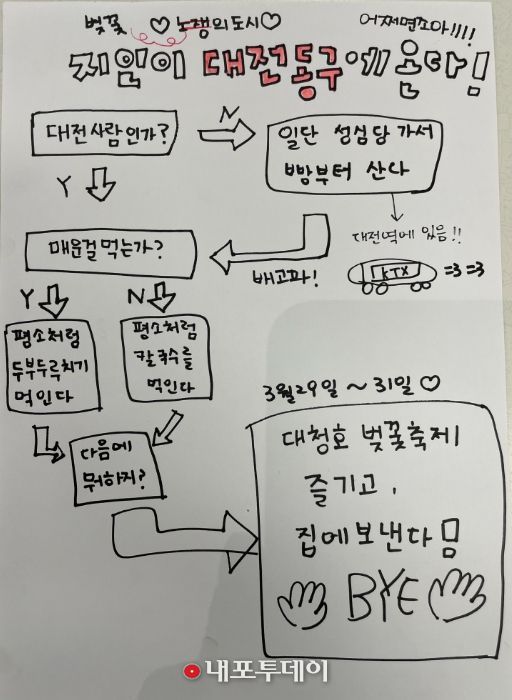 벚꽃 ♡노잼의도시♡ 어쩌면조아!!!!
지인이 대전동구에온다띰
대전사람인가?
N
일단 성심당 가서
빵부터 산다
Y
대전역에 있음!!
KTX =3 =3
매운걸먹는가?
배고파!
Y
N
평소처럼
두부두루치기
먹인다
평소처럼
칼국수를
먹인다
다음에
뭐하지?
3월29일 ~31일♡
대청호 벚꽃축제
즐기고,
집에보낸다띰
BYE
내포투데이